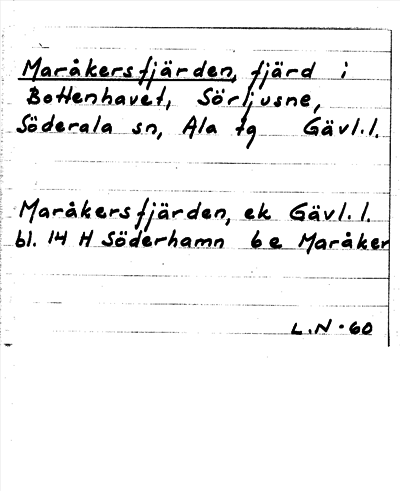 Maråkersfjärden, fjärd i
Bottenhavet, Sörljusne,
Söderala sn, Ala tg Gävl.l.
Maråkersfjärden, ek Gävl.l.
bl. 14 H Söderhamn 6 e Maråker
L.N.60